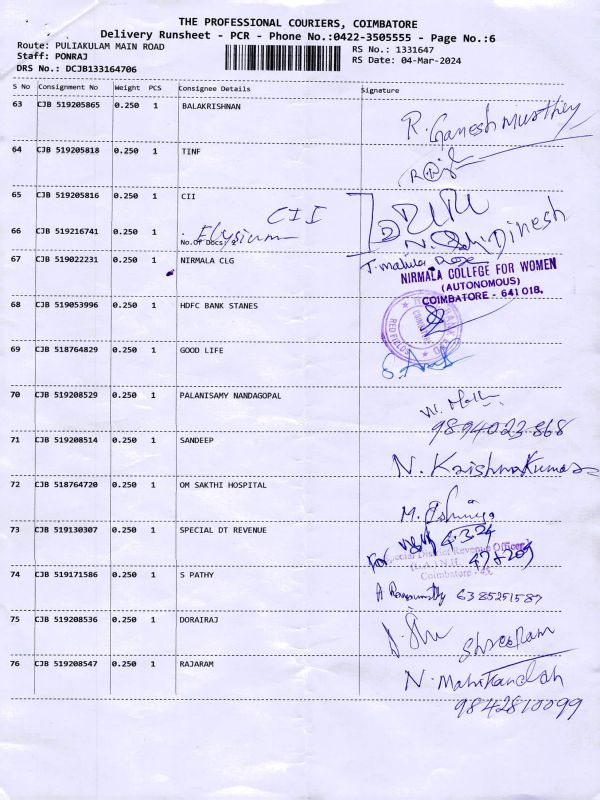 THE PROFESSIONAL COURIERS, COIMBATORE
Delivery Runsheet - PCR - Phone No.:0422-3505555 - Page No.:6
Route: PULIAKULAM MAIN ROAD
RS No.: 1331647
Staff: PONRAJ
RS Date: 04-Mar-2024
DRS No.: DCJB133164706
S No Consignment No Weight PCS Consignee Details Signature
63 CJB 519205865 0.250 1 BALAKRISHNAN
R. Ganesh Murthy
64 CJB 519205818 0.250 1 TINF
65 CJB 519205816 0.250 1 CII
CII
66 CJB 519216741 0.250 1 Elysium
No.Of Docs: 2
N. Dinesh
67 CJB 519022231 0.250 1 NIRMALA CLG
NIRMALA COLLEGE FOR WOMEN
(AUTONOMOUS)
COIMBATORE - 641 018.
68 CJB 519053996 0.250 1 HDFC BANK STANES
RED FIELDS
69 CJB 518764829 0.250 1 GOOD LIFE
70 CJB 519208529 0.250 1 PALANISAMY NANDAGOPAL
9894023868
71 CJB 519208514 0.250 1 SANDEEP
N. Krishnakumar
72 CJB 518764720 0.250 1 OM SAKTHI HOSPITAL
73 CJB 519130307 0.250 1 SPECIAL DT REVENUE
For 4.3.24
Special District Revenue Officer
(L.A) N.H.
Coimbatore - 45.
74 CJB 519171586 0.250 1 S PATHY
6385251587
75 CJB 519208536 0.250 1 DORAIRAJ
Shreeram
76 CJB 519208547 0.250 1 RAJARAM
N. Manikandan
9842810099